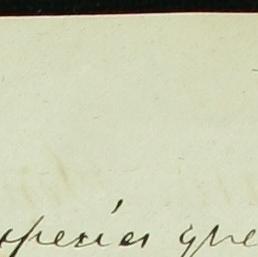 species que